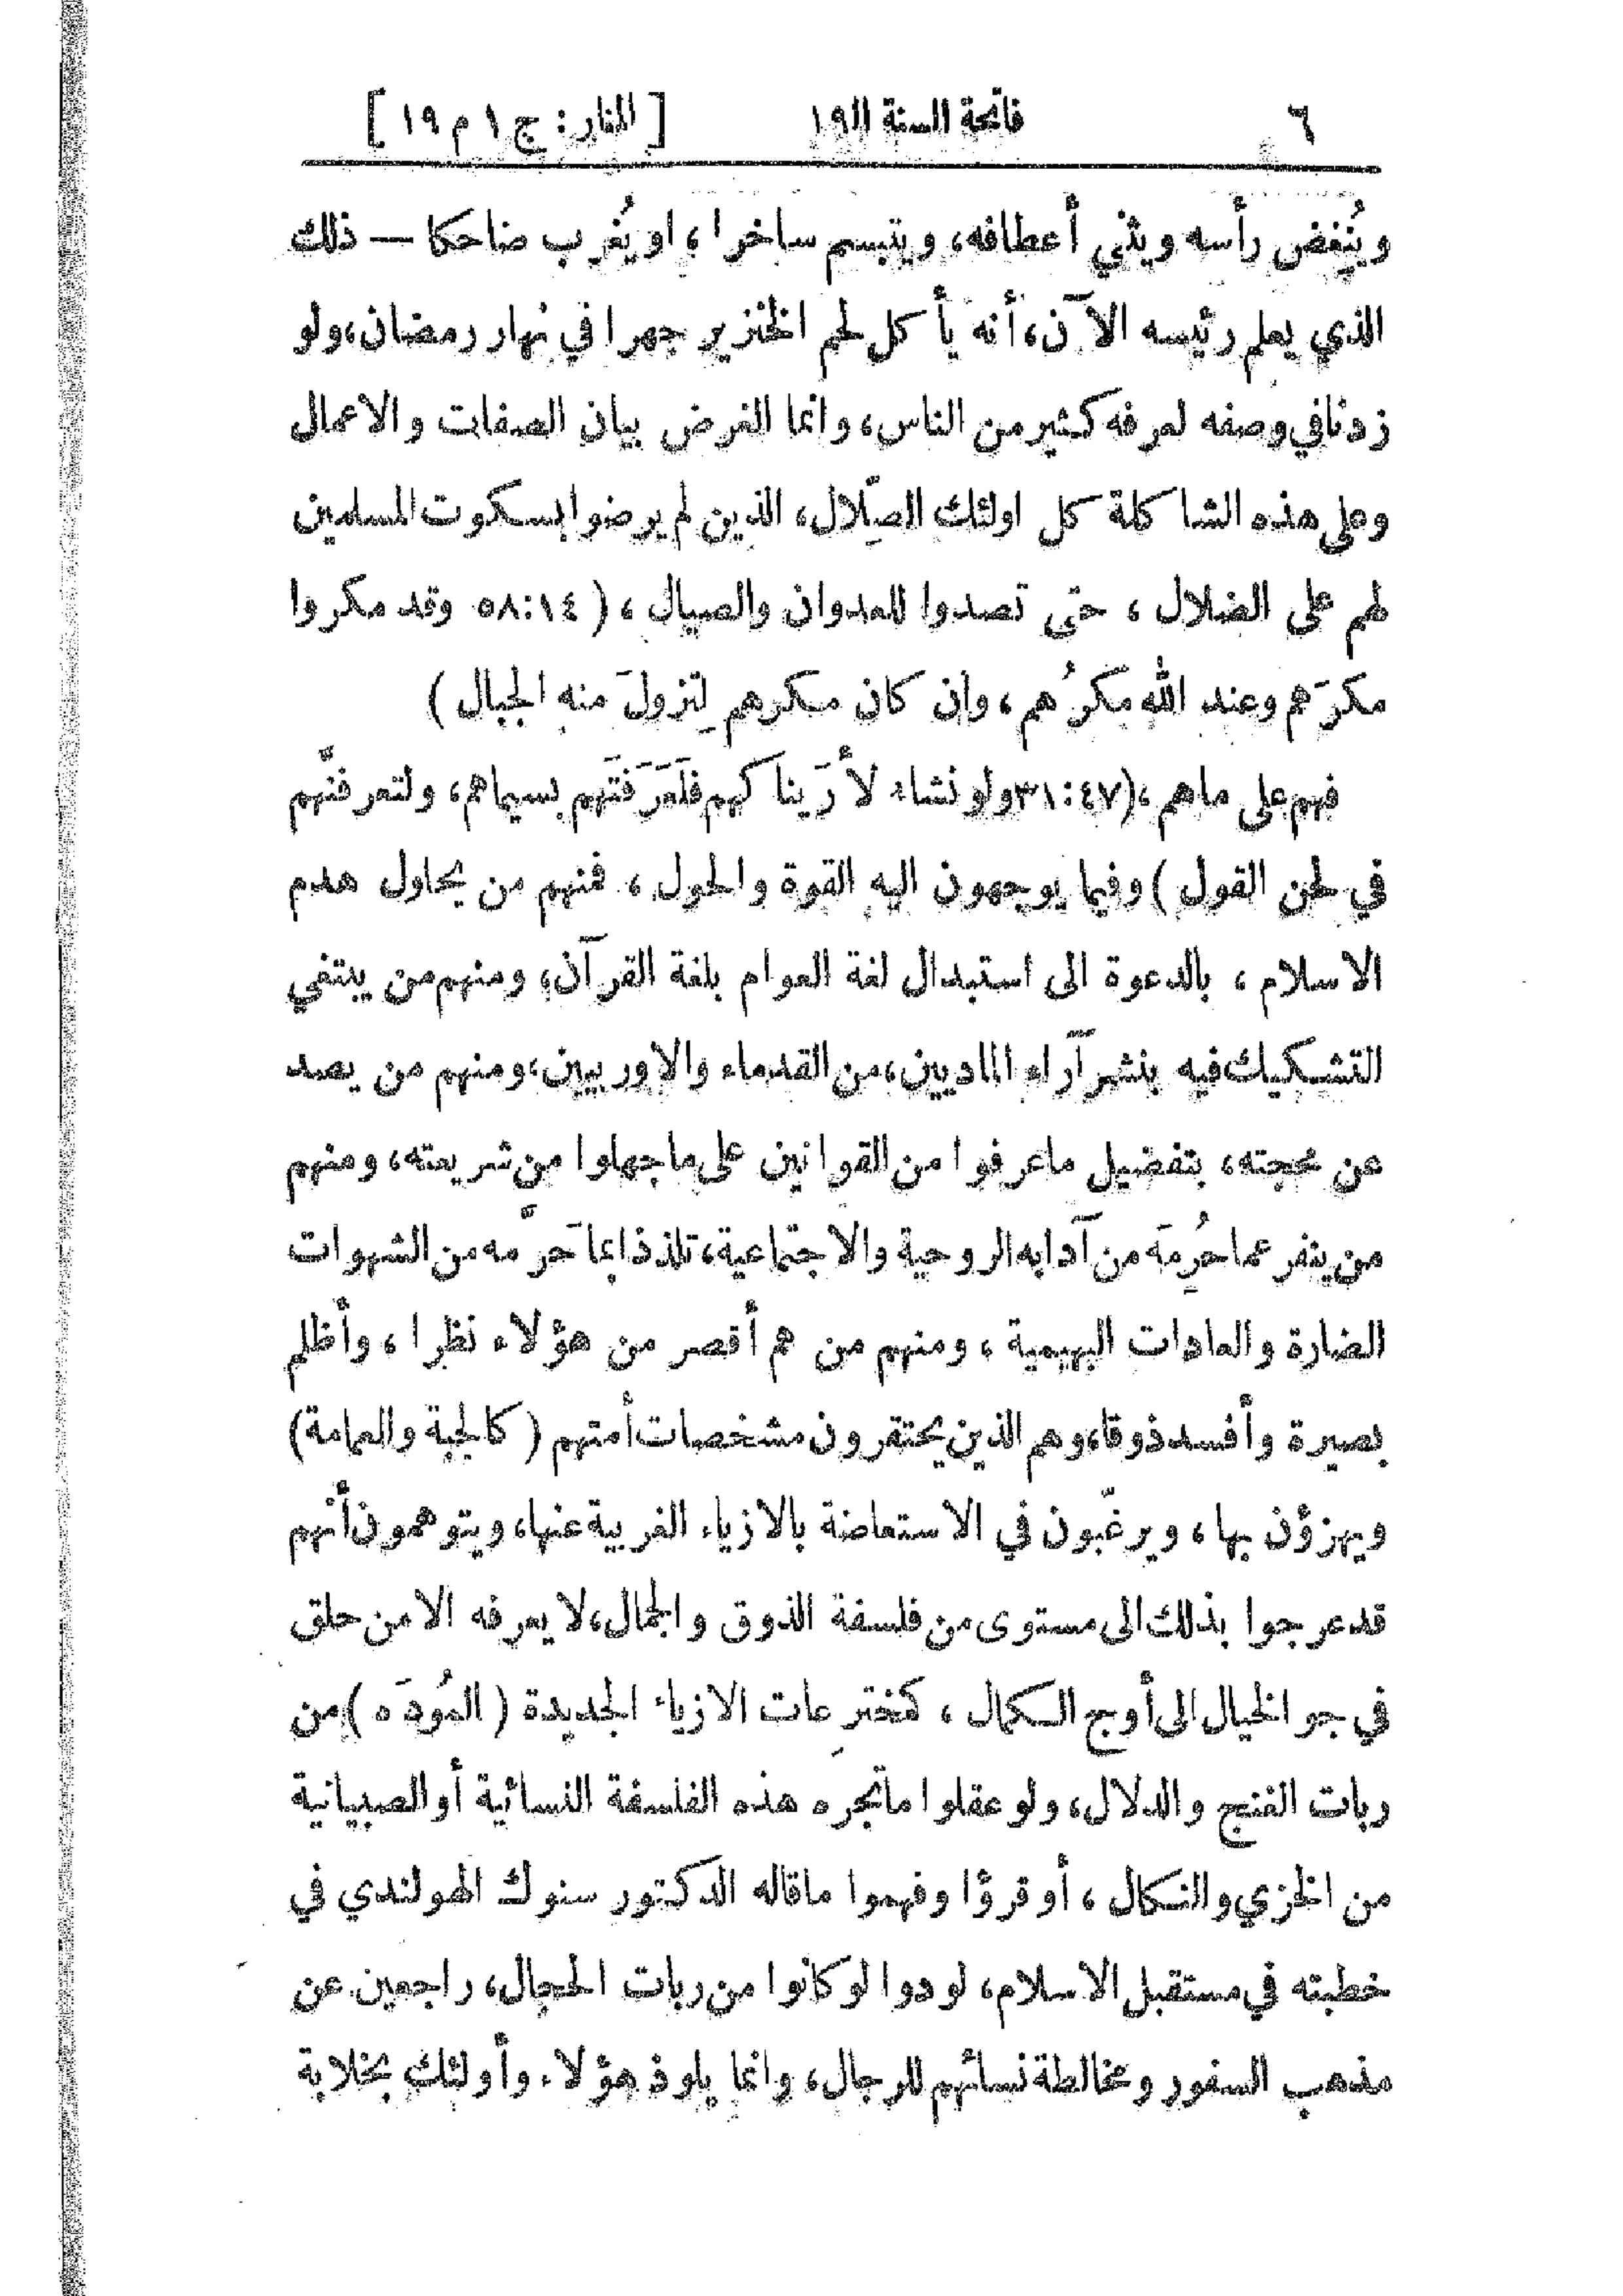 ٦ فاتحة السنة الـ١٩ [ المنار : ج ١ م ١٩ ]
ويُنغِض رأسه ويثني أعطافه، ويتبسم ساخرا ، او يُغرب ضاحكا — ذلك
الذي يعلم رئيسه الآن، أنه يأكل لحم الخنزير جهرا في نهار رمضان، ولو
زدنا في وصفه لعرفه كثير من الناس، وانما الغرض بيان الصفات والاعمال
وعلى هذه الشاكلة كل اولئك الصِّلال، الذين لم يرضوا بسكوت المسلمين
لهم على الضلال ، حتى تصدوا للعدوان والصيال ، ( ٥٨:١٤ وقد مكروا
مكرَهم وعند الله مَكرُهم ، وان كان مكرهم لِتزولَ منه الجبال )
فهم على ماهم ، (٣١:٤٧ ولو نشاء لأرَيناكهم فلَعَرَفتَهم بسيماهم، ولتعرفنَّهم
في لحن القول ) وفيما يوجهون اليه القوة والحول ، فمنهم من يحاول هدم
الاسلام ، بالدعوة الى استبدال لغة العوام بلغة القرآن، ومنهم من يبتغي
التشكيك فيه بنشر آراء الماديين، من القدماء والاوربيين، ومنهم من يصد
عن محجته، بتفضيل ماعرفوا من القوانين على ماجهلوا من شريعته، ومنهم
من ينفر عما حُرِمَه من آدابه الروحية والاجتماعية، تلذذا بما حَرَّمه من الشهوات
الضارة والعادات البهيمية ، ومنهم من هم أقصر من هؤلاء نظرا ، وأظلم
بصيرة وأفسد ذوقا، وهم الذين يحتقرون مشخصات أمتهم ( كالجبة والعمامة)
ويهزؤن بها ، ويرغّبون في الاستعاضة بالازياء الغربية عنها، ويتوهمون أنهم
قد عرجوا بذلك الى مستوى من فلسفة الذوق والجمال، لا يعرفه الا من حلق
في جو الخيال الى أوج الكمال ، كمخترِعات الازياء الجديدة ( المُودَه ) من
ربات الغنج والدلال، ولو عقلوا ماتجره هذه الفلسفة النسائية أو الصبيانية
من الخزي والنكال ، أو قرؤا وفهموا ماقاله الدكتور سنوك الهولندي في
خطبته في مستقبل الاسلام، لودوا لو كانوا من ربات الحجال، راجعين عن
مذهب السفور ومخالطة نسائهم للرجال، وانما يلوذ هؤلاء وأولئك بخلابة